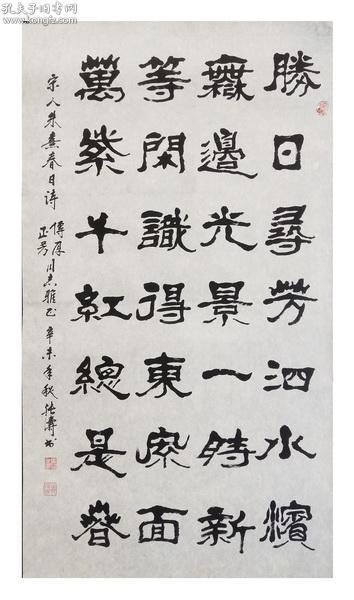 孔夫子旧书网
www.kongfz.com
勝日尋芳泗水濱
無邊光景一時新
等閑識得東風面
萬紫千紅總是春
宋人朱熹春日诗
傅厚
正芳同志雅正 辛未年秋张寿